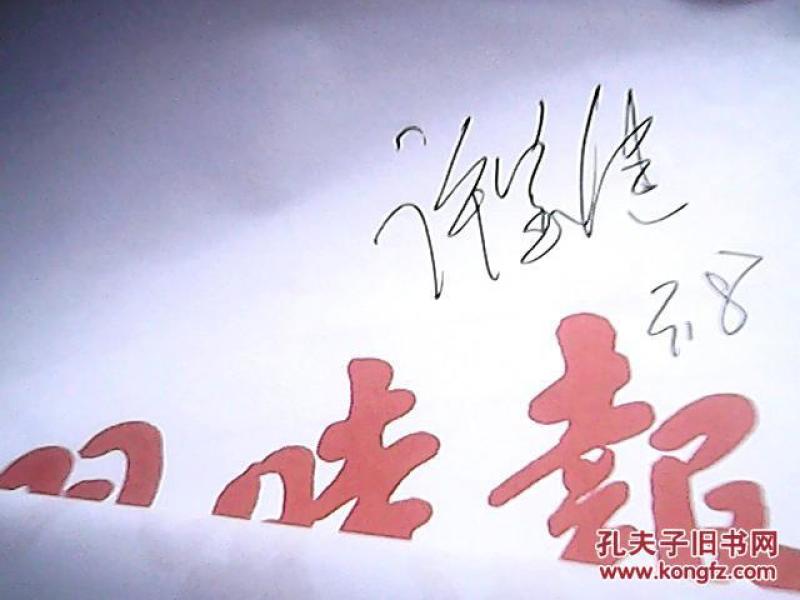 许宝健
5.8
時報
孔夫子旧书网
www.kongfz.com